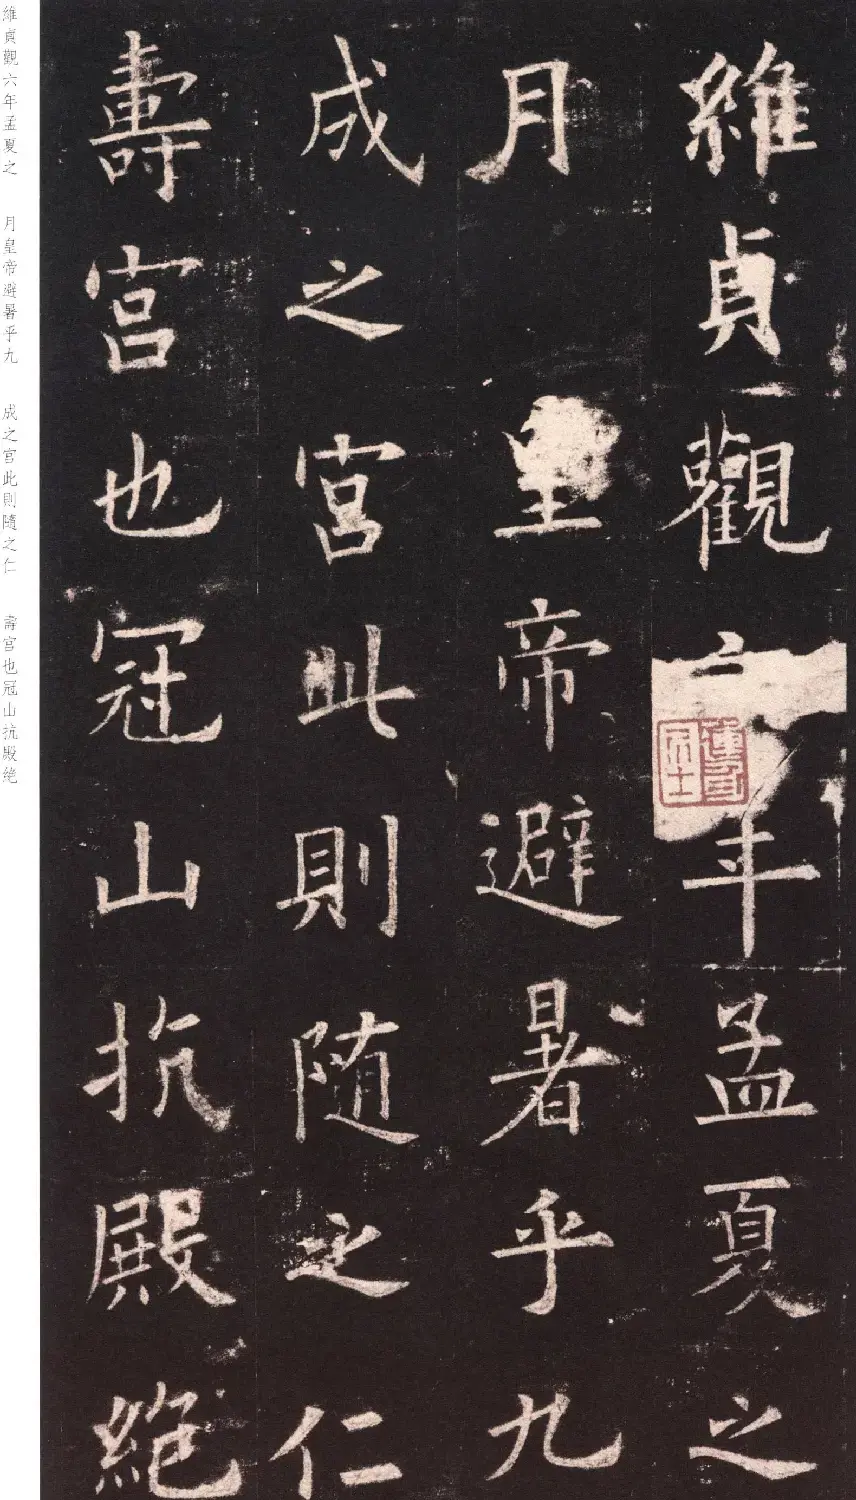 維貞觀六年孟夏之
月皇帝避暑乎九
成之宮此則隨之仁
壽宮也冠山抗殿絕
維貞觀六年孟夏之 月皇帝避暑乎九 成之宮此則隨之仁 壽宮也冠山抗殿絶